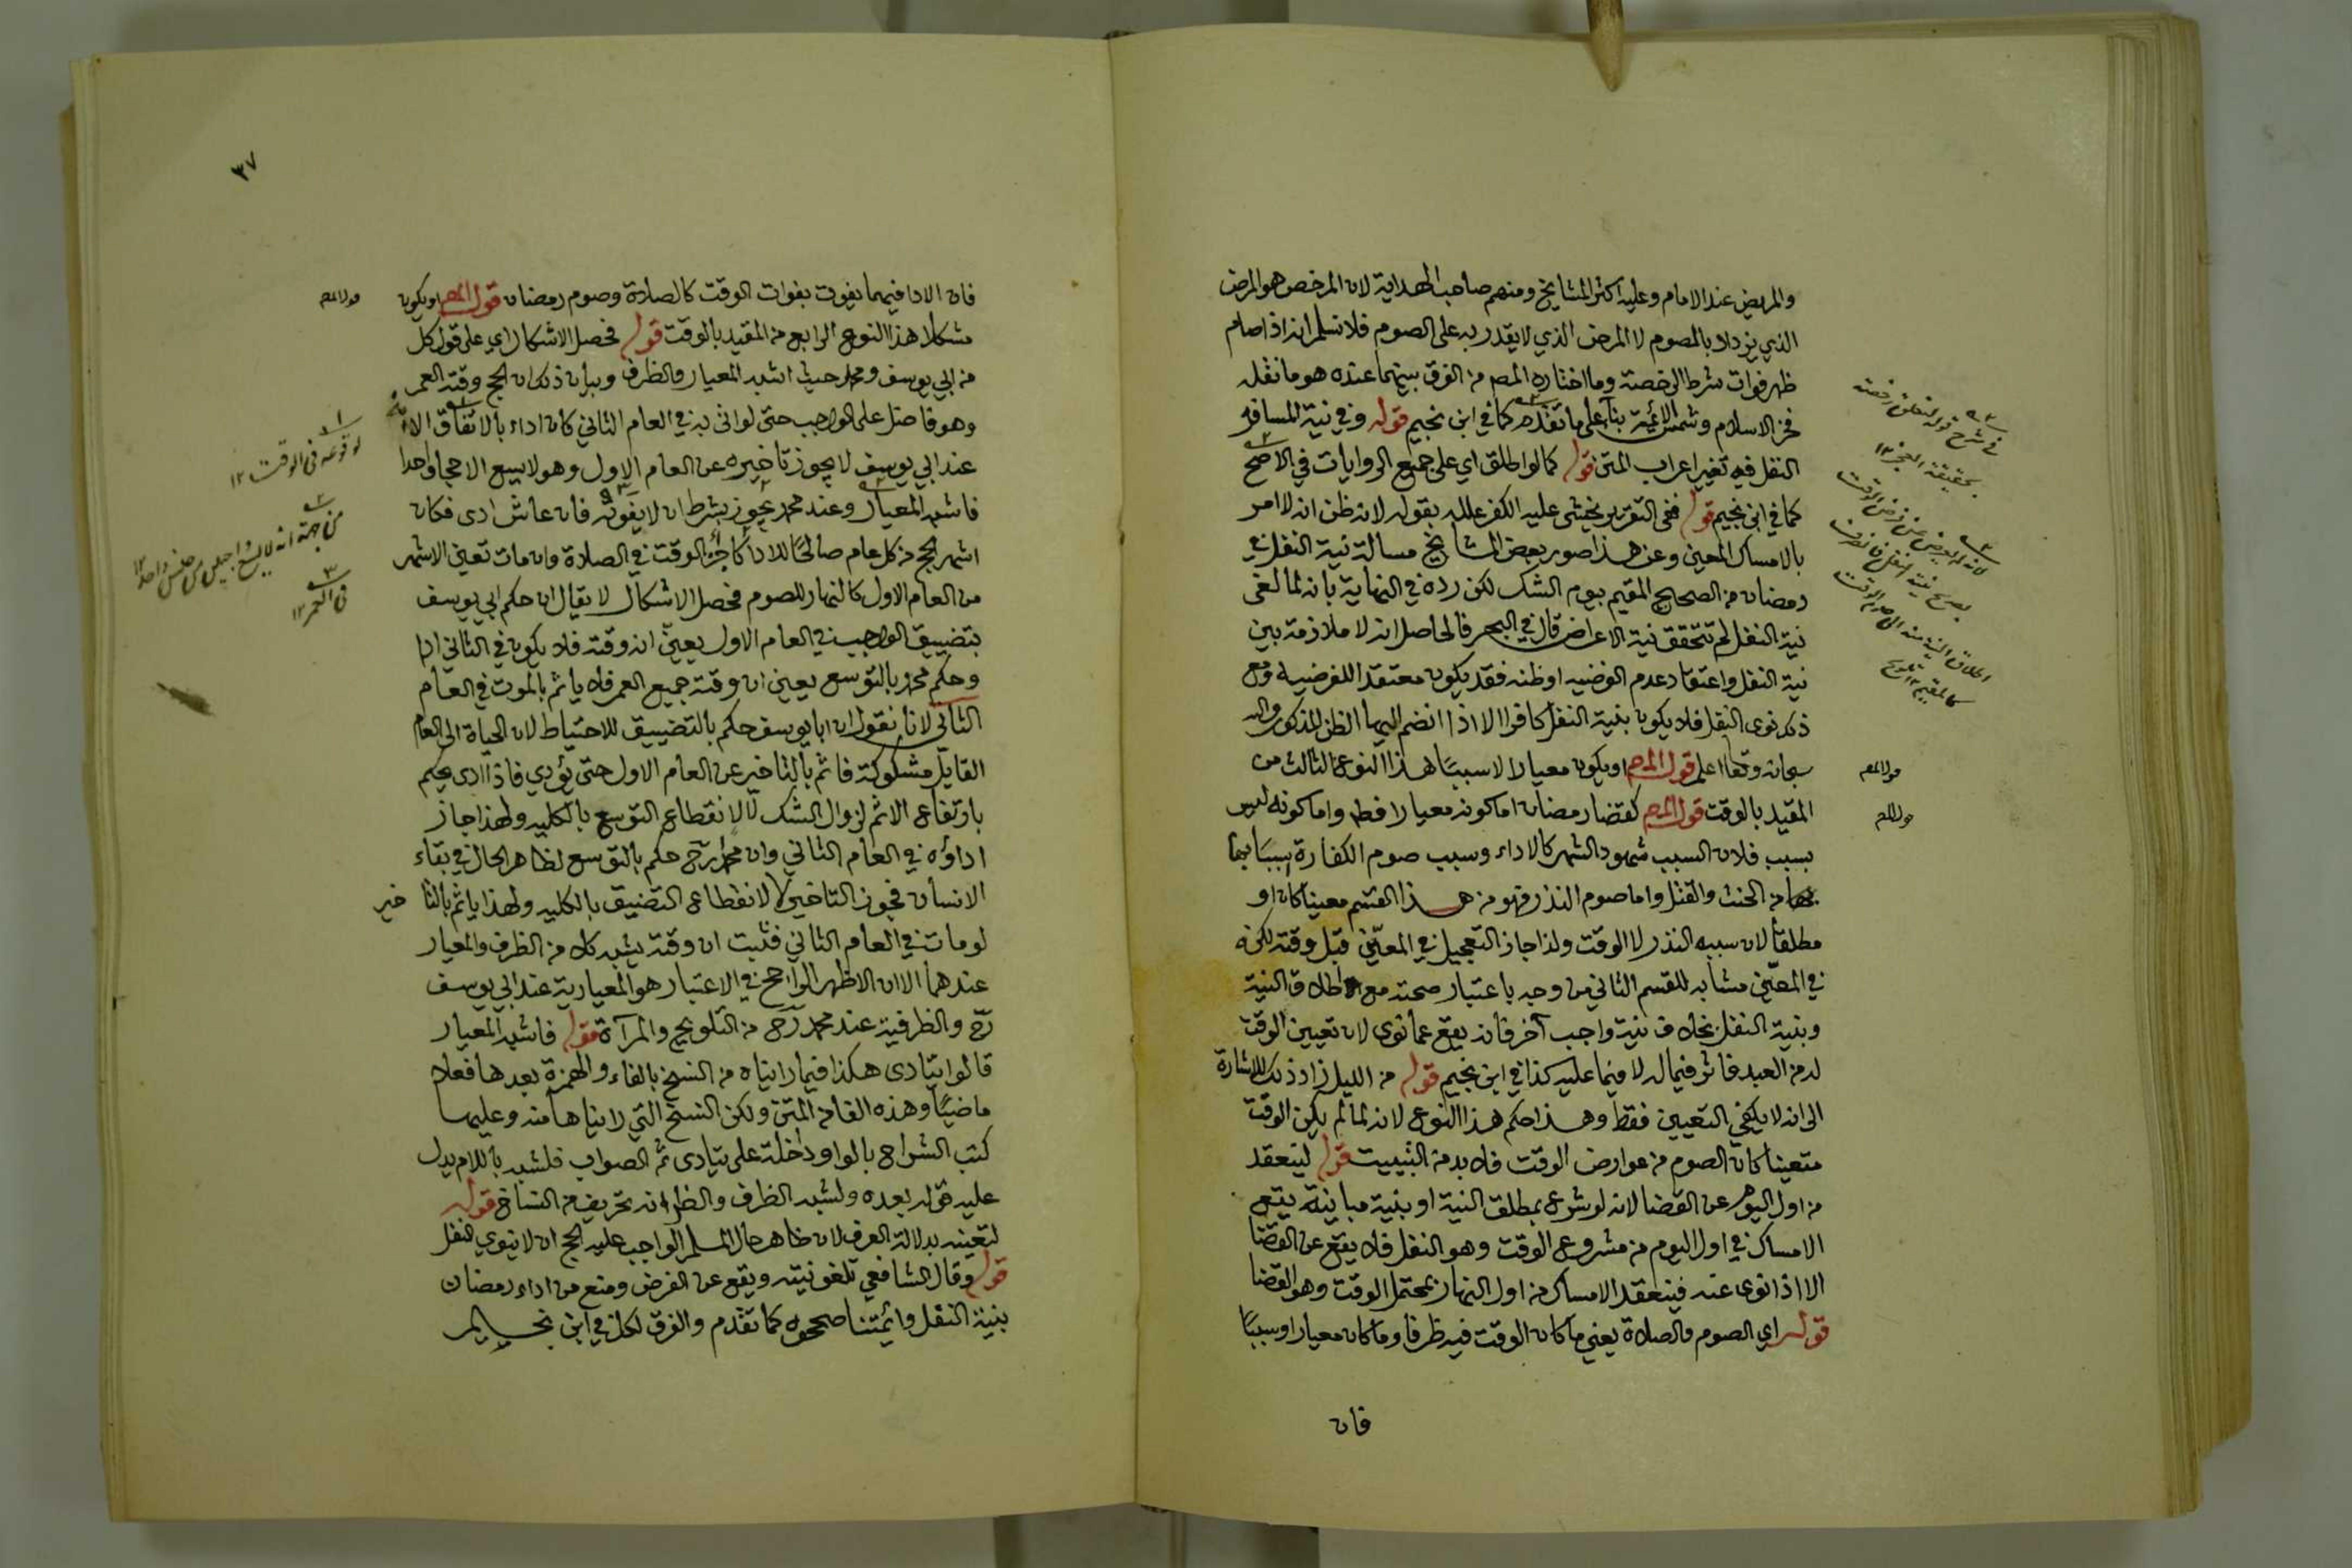 والمريض عند الامام وعليه اكثر المشايخ ومنهم صاحب الهداية لان المرخص هو المرض
الذي يزداد بالصوم لا المرض الذي لا يقدر به على الصوم فلا نسلم انه اذا صام
ظهر فوات شرط الرخصة وما اختاره المصـ من الفرق بينهما عنده هو ما نقله
فخر الاسلام وشمس الائمة بناء على ما تقدم كما في ابن نجيم قوله وفي نية المسافر
النفل فيه تغير اعراب المتن قوله كما لو اطلق اي على جميع الروايات في الاصح
كما في ابن نجيم قوله ففى التقرير يخشى عليه الكفر علله بقوله لانه ظن ان لا امر
بالامساك المعين وعن هذا صور بعض المشايخ مسالة نية النفل في
رمضان من الصحيح المقيم بيوم الشك لكن رده في النهاية بانه لما لغى
نية النفل لم تتحقق نية الاعراض قال في البحر فالحاصل انه لا ملازمة بين
نية النفل واعتقاد عدم الفرضيه او ظنه فقد يكون معتقدا للفرضيه ومع
ذلك نوى النفل فلا يكون بنية النفل كافرا الا اذا انضم اليها الظن المذكور والله
سبحانه وتعا اعلم قول المصـ او يكون معيارا لا سببًا هذا النوع الثالث من
المقيد بالوقت قول المصـ كقضا رمضان اما كونه معيارا فظ واما كونه ليس
بسبب فلان السبب شهود الشهر كالاداء وسبب صوم الكفارة اسبابها
من الحنث والقتل واما صوم النذر فهو من هذا القسم معينا كان او
مطلقا لان سببه النذر لا الوقت ولذا جاز التعجيل في المعيّن قبل وقته لكنه
في المعيّن مشابه للقسم الثاني من وجه باعتبار صحته مع اطلاق النية
وبنية النفل بخلاف نية واجب آخر فانه يقع عما نوى لان تعيين الوقت
له من العبد فاثر فيما له لا فيما عليه كذا في ابن نجيم قوله من الليل زاد ذلك للاشارة
الى انه لا يكفي التعيين فقط وهذا حكم هذا النوع لانه لما لم يكن الوقت
متعينا كان الصوم من عوارض الوقت فلا بد من التبييت قوله لينعقد
من اول اليوم عن القضا لانه لو شرع بمطلق النية او بنية مباينة يقع
الامساك في اول اليوم من مشروع الوقت وهو النفل فلا يقع عن القضا
الا اذا نوى عنه فينعقد الامساك من اول النهار بمحتمل الوقت وهو القضا
قوله اي الصوم والصلاة يعني ما كان الوقت فيه ظرفا وما كان معيارا وسببًا
فان
في شرح قوله لتعلق رخصته
بحقيقة العجز ١٢
كالمقيم ١٢ تلويح
قول المصـ
قول المصـ
٣٧
فان الادا فيهما يفوت بفوات الوقت كالصلاة وصوم رمضان قول المصـ او يكون
مشكلا هذا النوع الرابع من المقيد بالوقت قوله فحصل الاشكال اي على قول كل
من ابي يوسف ومحمد حيث اشبه المعيار والظرف وبيان ذلك ان الحج وقته العمر
وهو فاضل على الواجب حتى لو اتى به في العام الثاني كان اداء بالاتفاق الا انه
عند ابي يوسف لا يجوز تاخيره عن العام الاول وهو لا يسع الا حجا واحدا
فاشبه المعيار وعند محمد يجوز بشرط ان لا يفوته فان عاش ادى فكان
اشهر الحج من كل عام صالحًا للادا كاجزاء الوقت في الصلاة وان مات تعين الاشهر
من العام الاول كالنهار للصوم فحصل الاشكال لا يقال ان حكم ابي يوسف
بتضييق الواجب في العام الاول يعين انه وقته فلا يكون في الثاني ادا
وحكم محمد بالتوسع يعين ان وقته جميع العمر فلا ياثم بالموت في العام
الثاني لانا نقول ان ابا يوسف حكم بالتضييق للاحتياط لان الحياة الى العام
القابل مشكوكة فاثم بالتاخير عن العام الاول حتى يؤدي فاذا ادى حكم
بارتفاع الاثم لزوال الشك لا لانقطاع التوسع بالكليه ولهذا جاز
اداؤه في العام الثاني وان محمدا رح حكم بالتوسع لظاهر الحال في بقاء
الانسان فجوز التاخير لا لانقطاع التضييق بالكليه ولهذا ياثم بالتاخير
لو مات في العام الثاني فثبت ان وقته يشبه كلا من الظرف والمعيار
عندهما الا ان الاظهر الراجح في الاعتبار هو المعيارية عند ابي يوسف
رح والظرفية عند محمد رح من التلويح والمرآة قوله فاشبه المعيار
قالوا يتادى هكذا فيما رايناه من النسخ بالفاء والهمزة بعدها فعلا
ماضيًا وهذه الفا من المتن ولكن النسخ التي رايناها منه وعليها
كتب الشراح بالواو داخلة على يتادى ثم الصواب فلشبه باللام يدل
عليه قوله بعده ولشبه الظرف والظ انه تحريف من النساخ قوله
لتعينه بدلالة العرف لان ظاهر حال المسلم الواجب عليه الحج ان لا ينوي النفل
قوله وقال الشافعي تلغو نيته ويقع عن الفرض ومنع من اداء رمضان
بنية النفل وائمتنا صححوه كما تقدم والفرق لكل في ابن نجيم
قول المصـ
لوقوعه فى الوقت ١٢
من جهة انه لا يسع واجبين من جنس واحد ١٢
فى العمر ١٢